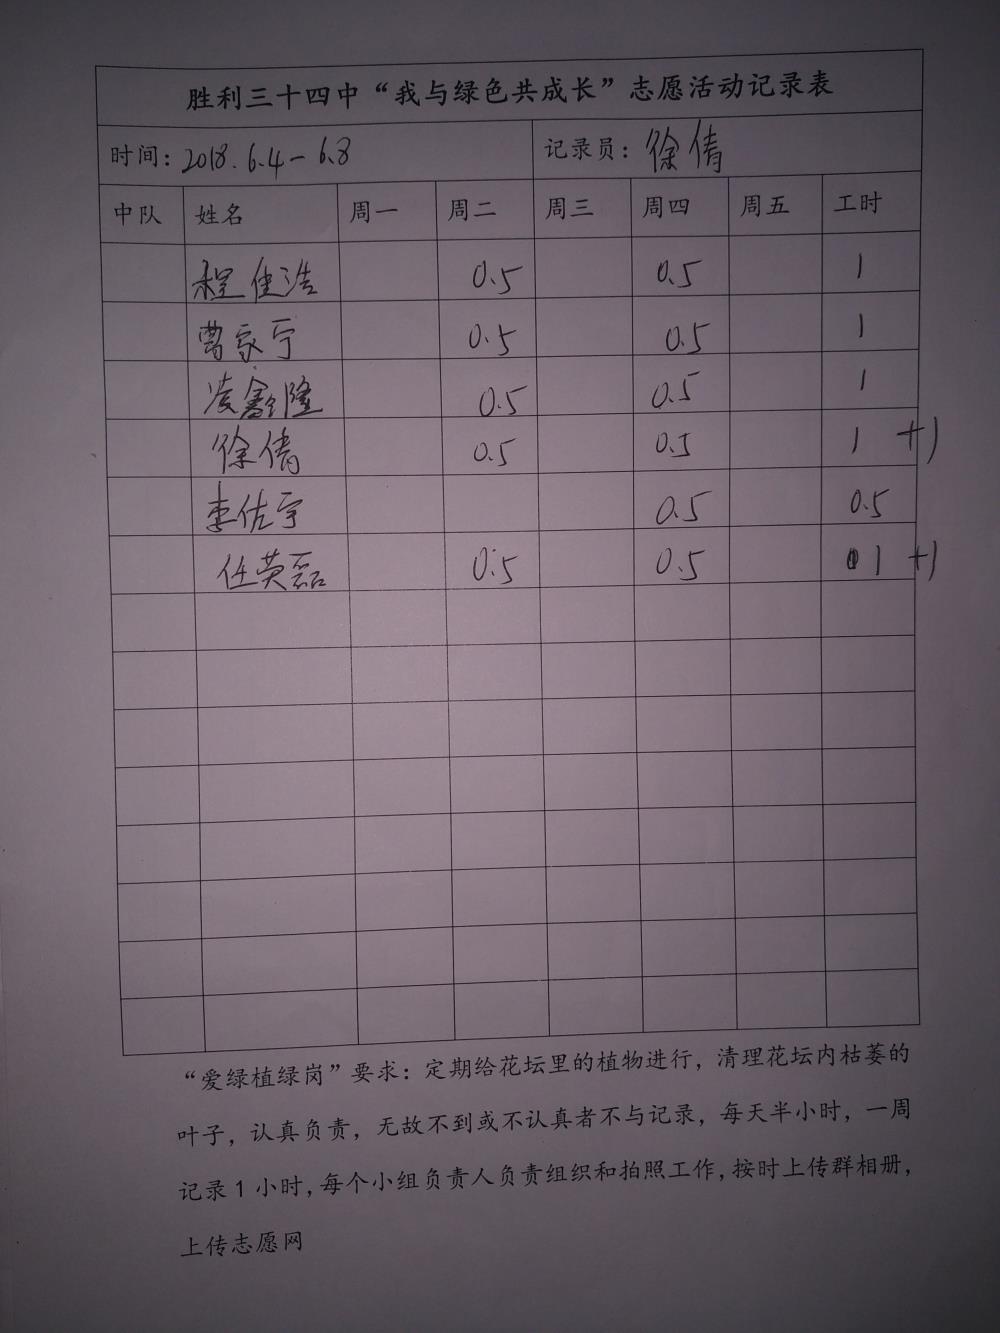 胜利三十四中“我与绿色共成长”志愿活动记录表
时间：2018.6.4－6.8 记录员：徐倩
中队 姓名 周一 周二 周三 周四 周五 工时
程佳浩 0.5 0.5 1
曹家宁 0.5 0.5 1
凌鑫隆 0.5 0.5 1
徐倩 0.5 0.5 1 +1
李佑宇 0.5 0.5
任英磊 0.5 0.5 1 +1
“爱绿植绿岗”要求：定期给花坛里的植物进行，清理花坛内枯萎的
叶子，认真负责，无故不到或不认真者不与记录，每天半小时，一周
记录1小时，每个小组负责人负责组织和拍照工作，按时上传群相册，
上传志愿网